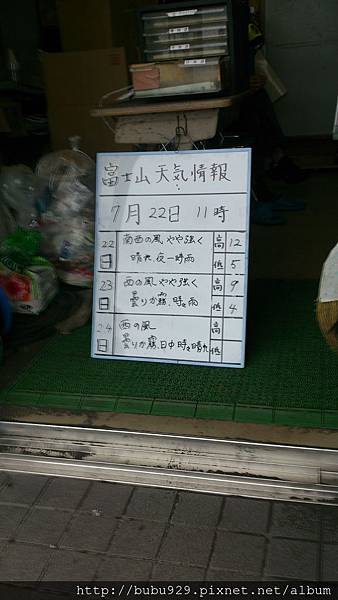 富士山天気情報
7月22日 11時
22日 南西の風 やや強く 高 12
晴れ 夜一時雨 低 5
23日 西の風 やや強く 高 9
曇りか霧、時々雨 低 4
24日 西の風 高
曇りか霧、日中時々晴れ 低
http://bubu929.pixnet.net/album